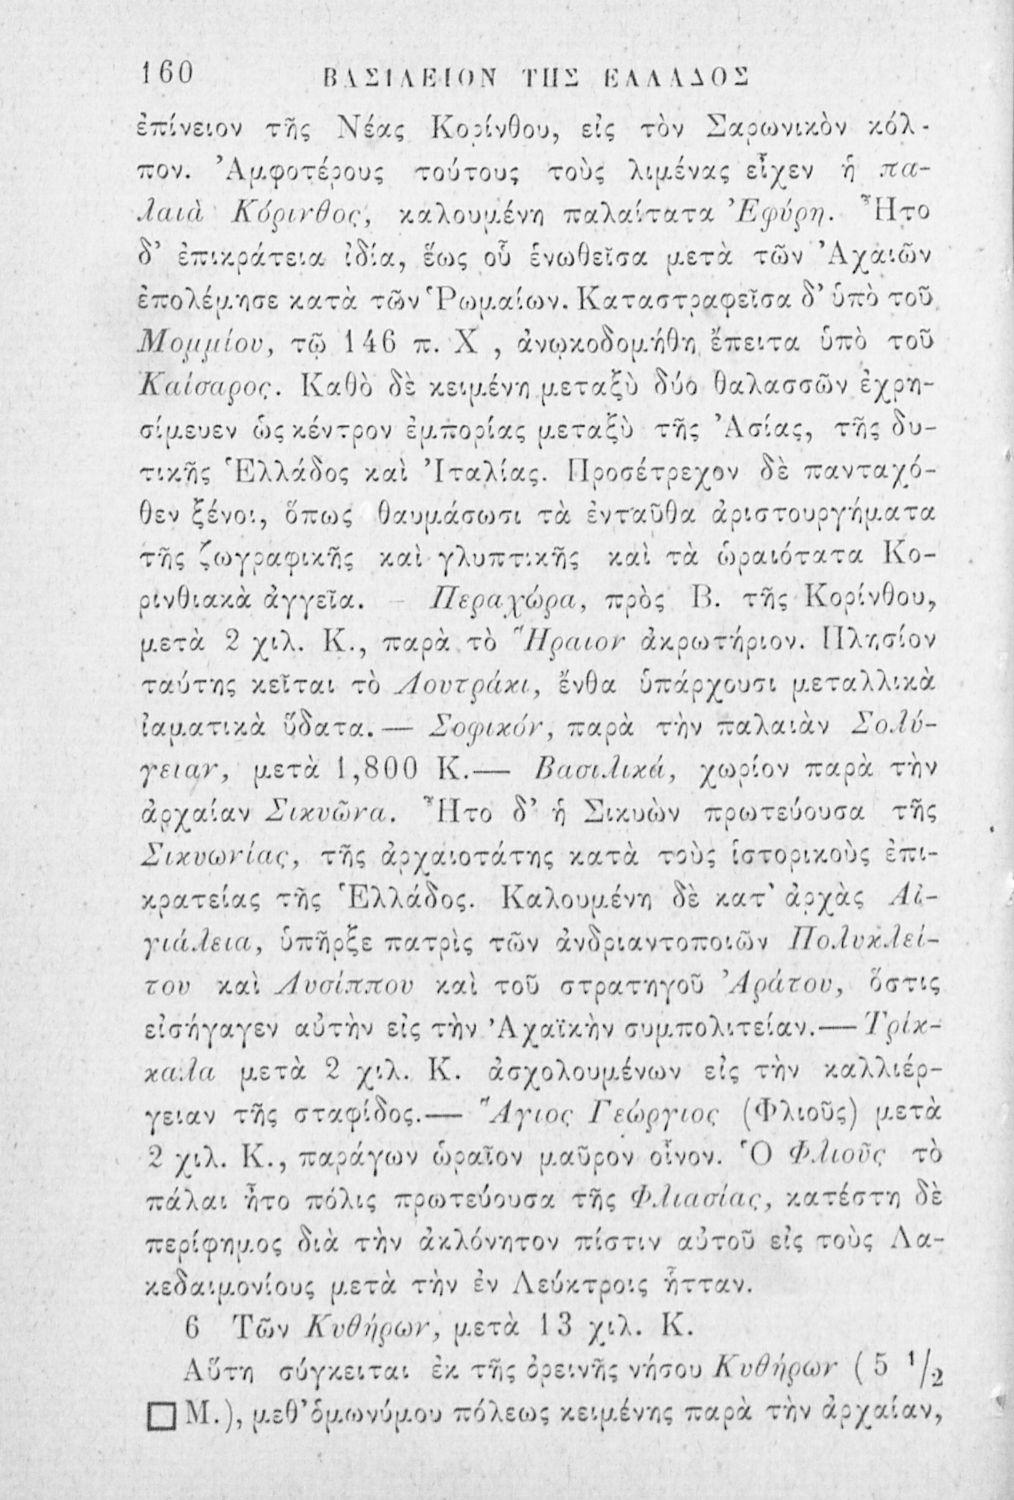 160 ΒΑΣΙΛΕΙΟΝ ΤΗΣ ΕΛΛΑΔΟΣ
ἐπίνειον τῆς Νέας Κορίνθου, εἰς τὸν Σαρωνικὸν κόλ-
πον. Ἀμφοτέρους τούτους τοὺς λιμένας εἶχεν ἡ πα-
λαιὰ Κόρινθος, καλουμένη παλαίτατα Ἐφύρη. Ἦτο
δ’ ἐπικράτεια ἰδία, ἕως οὗ ἑνωθεῖσα μετὰ τῶν Ἀχαιῶν
ἐπολέμησε κατὰ τῶν Ῥωμαίων. Καταστραφεῖσα δ’ ὑπὸ τοῦ
Μομμίου, τῷ 146 π. Χ , ἀνῳκοδομήθη ἔπειτα ὑπὸ τοῦ
Καίσαρος. Καθὸ δὲ κειμένη μεταξὺ δύο θαλασσῶν ἐχρη-
σίμευεν ὡς κέντρον ἐμπορίας μεταξὺ τῆς Ἀσίας, τῆς δυ-
τικῆς Ἑλλάδος καὶ Ἰταλίας. Προσέτρεχον δὲ πανταχό-
θεν ξένοι, ὅπως θαυμάσωσι τὰ ἐνταῦθα ἀριστουργήματα
τῆς ζωγραφικῆς καὶ γλυπτικῆς καὶ τὰ ὡραιότατα Κο-
ρινθιακὰ ἀγγεῖα. — Περαχώρα, πρὸς Β. τῆς Κορίνθου,
μετὰ 2 χιλ. Κ., παρὰ τὸ Ἥραιον ἀκρωτήριον. Πλησίον
ταύτης κεῖται τὸ Λουτράκι, ἔνθα ὑπάρχουσι μεταλλικὰ
ἰαματικὰ ὕδατα.— Σοφικόν, παρὰ τὴν παλαιὰν Σολύ-
γειαν, μετὰ 1,800 Κ.— Βασιλικά, χωρίον παρὰ τὴν
ἀρχαίαν Σικυῶνα. Ἦτο δ’ ἡ Σικυὼν πρωτεύουσα τῆς
Σικυωνίας, τῆς ἀρχαιοτάτης κατὰ τοὺς ἱστορικοὺς ἐπι-
κρατείας τῆς Ἑλλάδος. Καλουμένη δὲ κατ’ ἀρχὰς Αἰ-
γιάλεια, ὑπῆρξε πατρὶς τῶν ἀνδριαντοποιῶν Πολυκλεί-
του καὶ Λυσίππου καὶ τοῦ στρατηγοῦ Ἀράτου, ὅστις
εἰσήγαγεν αὐτὴν εἰς τὴν Ἀχαϊκὴν συμπολιτείαν.— Τρίκ-
καλα μετὰ 2 χιλ. Κ. ἀσχολουμένων εἰς τὴν καλλιέρ-
γειαν τῆς σταφίδος.— Ἅγιος Γεώργιος (Φλιοῦς) μετὰ
2 χιλ. Κ., παράγων ὡραῖον μαῦρον οἶνον. Ὁ Φλιοῦς τὸ
πάλαι ἦτο πόλις πρωτεύουσα τῆς Φλιασίας, κατέστη δὲ
περίφημος διὰ τὴν ἀκλόνητον πίστιν αὐτοῦ εἰς τοὺς Λα-
κεδαιμονίους μετὰ τὴν ἐν Λεύκτροις ἧτταν.
6 Τῶν Κυθήρων, μετὰ 13 χιλ. Κ.
Αὕτη σύγκειται ἐκ τῆς ὀρεινῆς νήσου Κυθήρων ( 5 1/2
□ Μ.), μεθ’ ὁμωνύμου πόλεως κειμένης παρὰ τὴν ἀρχαίαν,